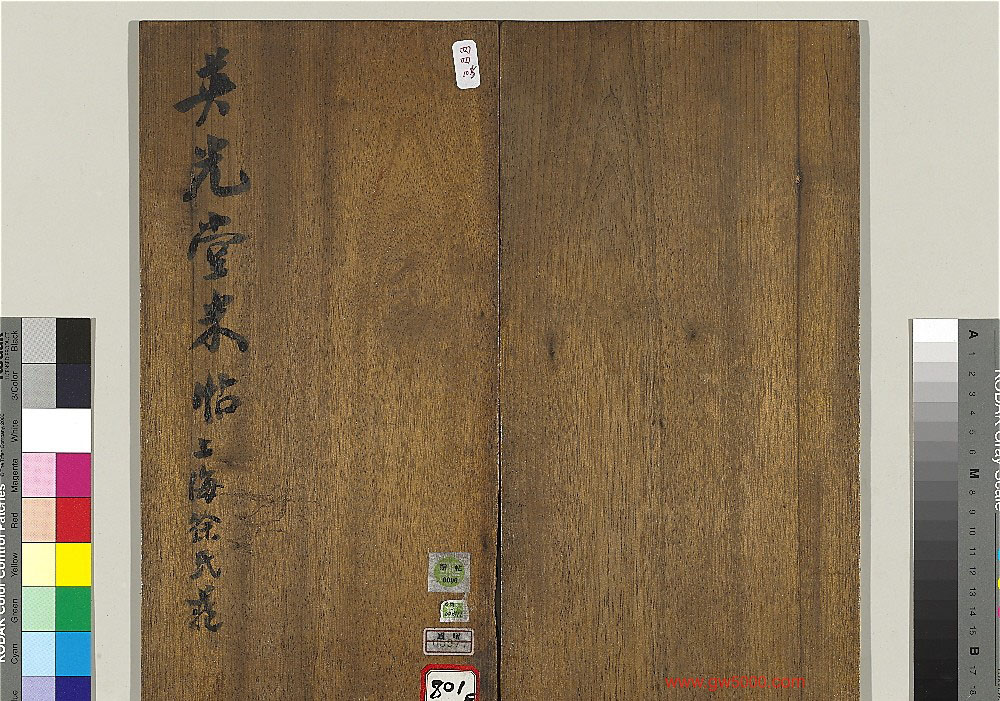 英光堂米帖上海徐氏藏
801
www.gw5000.com
KODAK Color Control Patches
Black
3/Color
White
Magenta
Red
Yellow
Green
Cyan
A
1
2
3
4
5
6
M
8
9
10
11
12
13
14
15
B
17
18